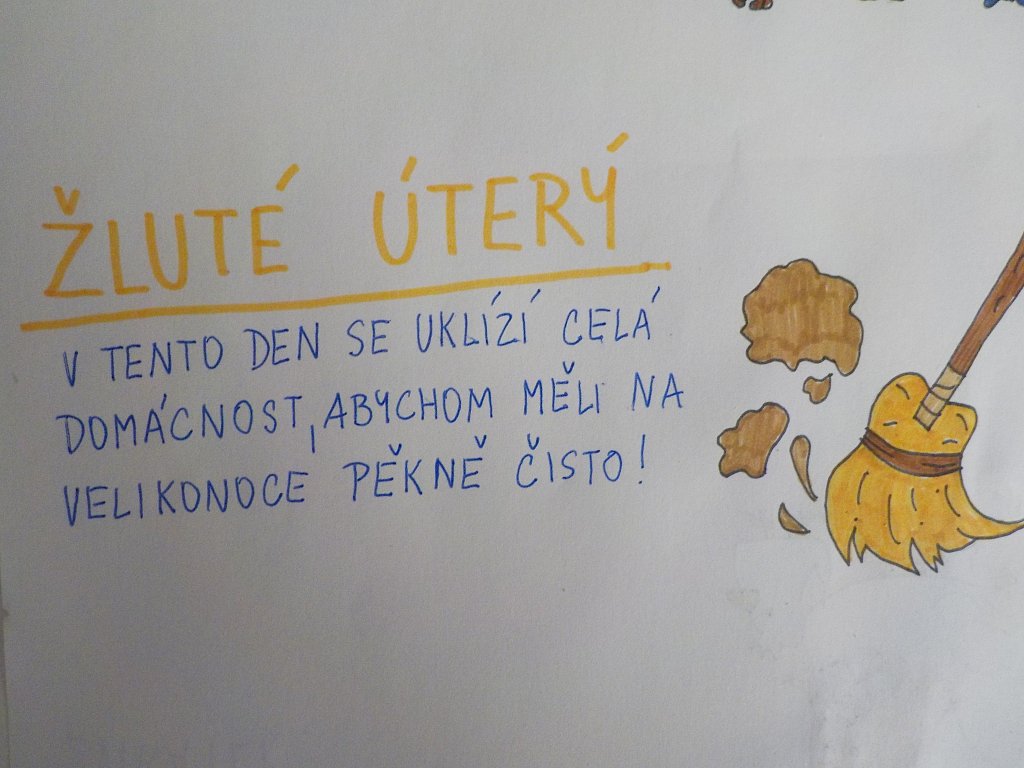 ŽLUTÉ ÚTERÝ
V TENTO DEN SE UKLÍZÍ CELÁ
DOMÁCNOST, ABYCHOM MĚLI NA
VELIKONOCE PĚKNĚ ČISTO!